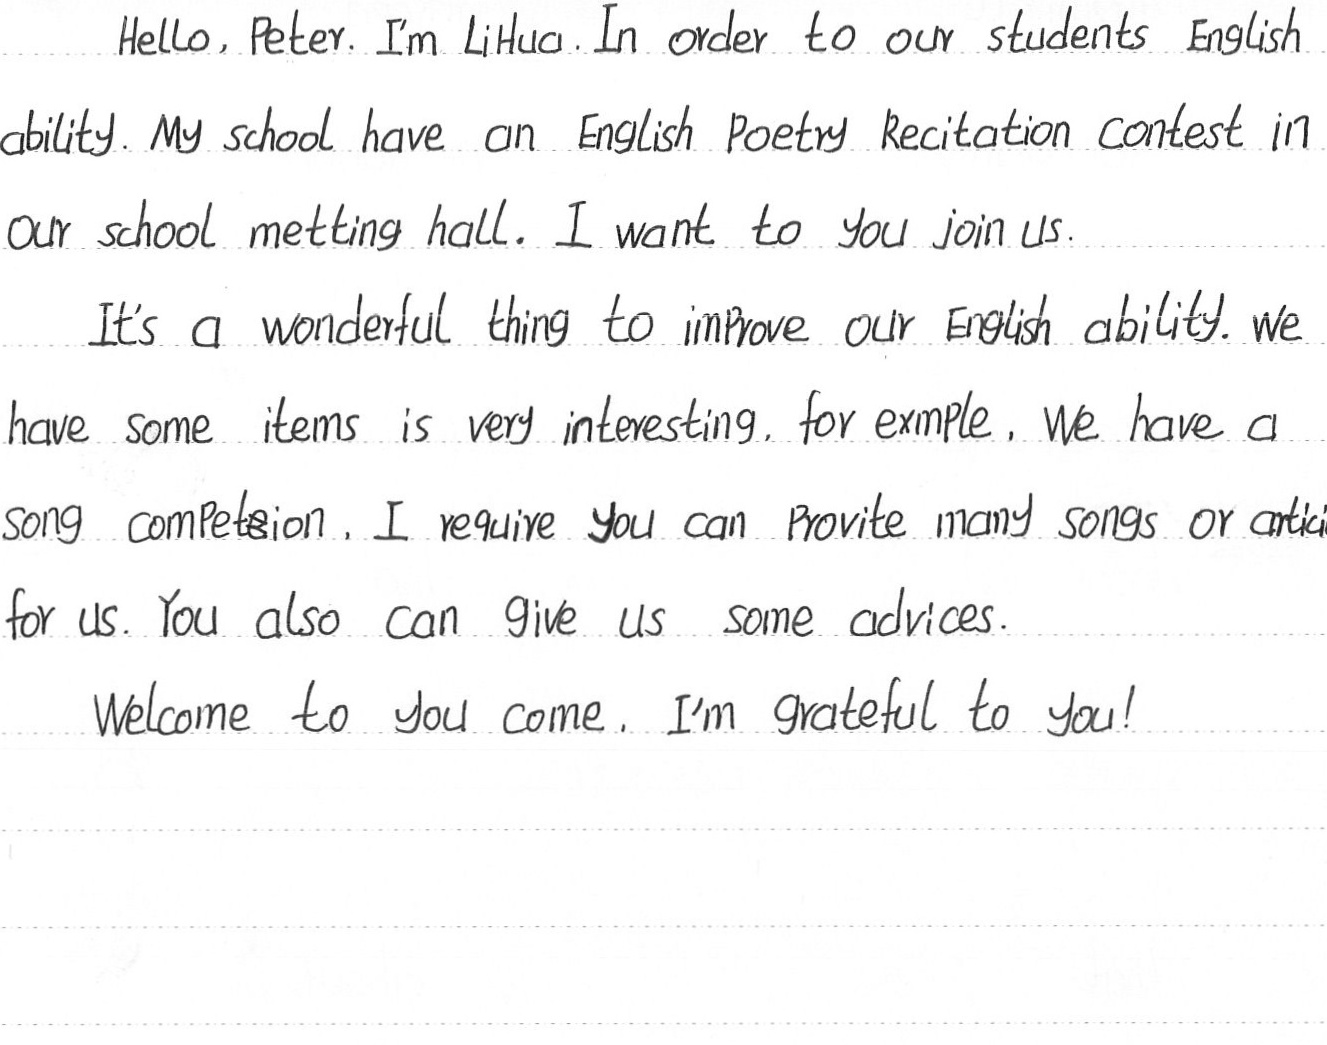 Hello, Peter. I'm LiHua. In order to our students English
ability. My school have an English Poetry Recitation Contest in
our school metting hall. I want to you join us.
It's a wonderful thing to improve our English ability. We
have some items is very interesting. for exmple. We have a
song competsion. I require you can Provite many songs or
for us. You also can give us some advices.
Welcome to you come. I'm grateful to you!